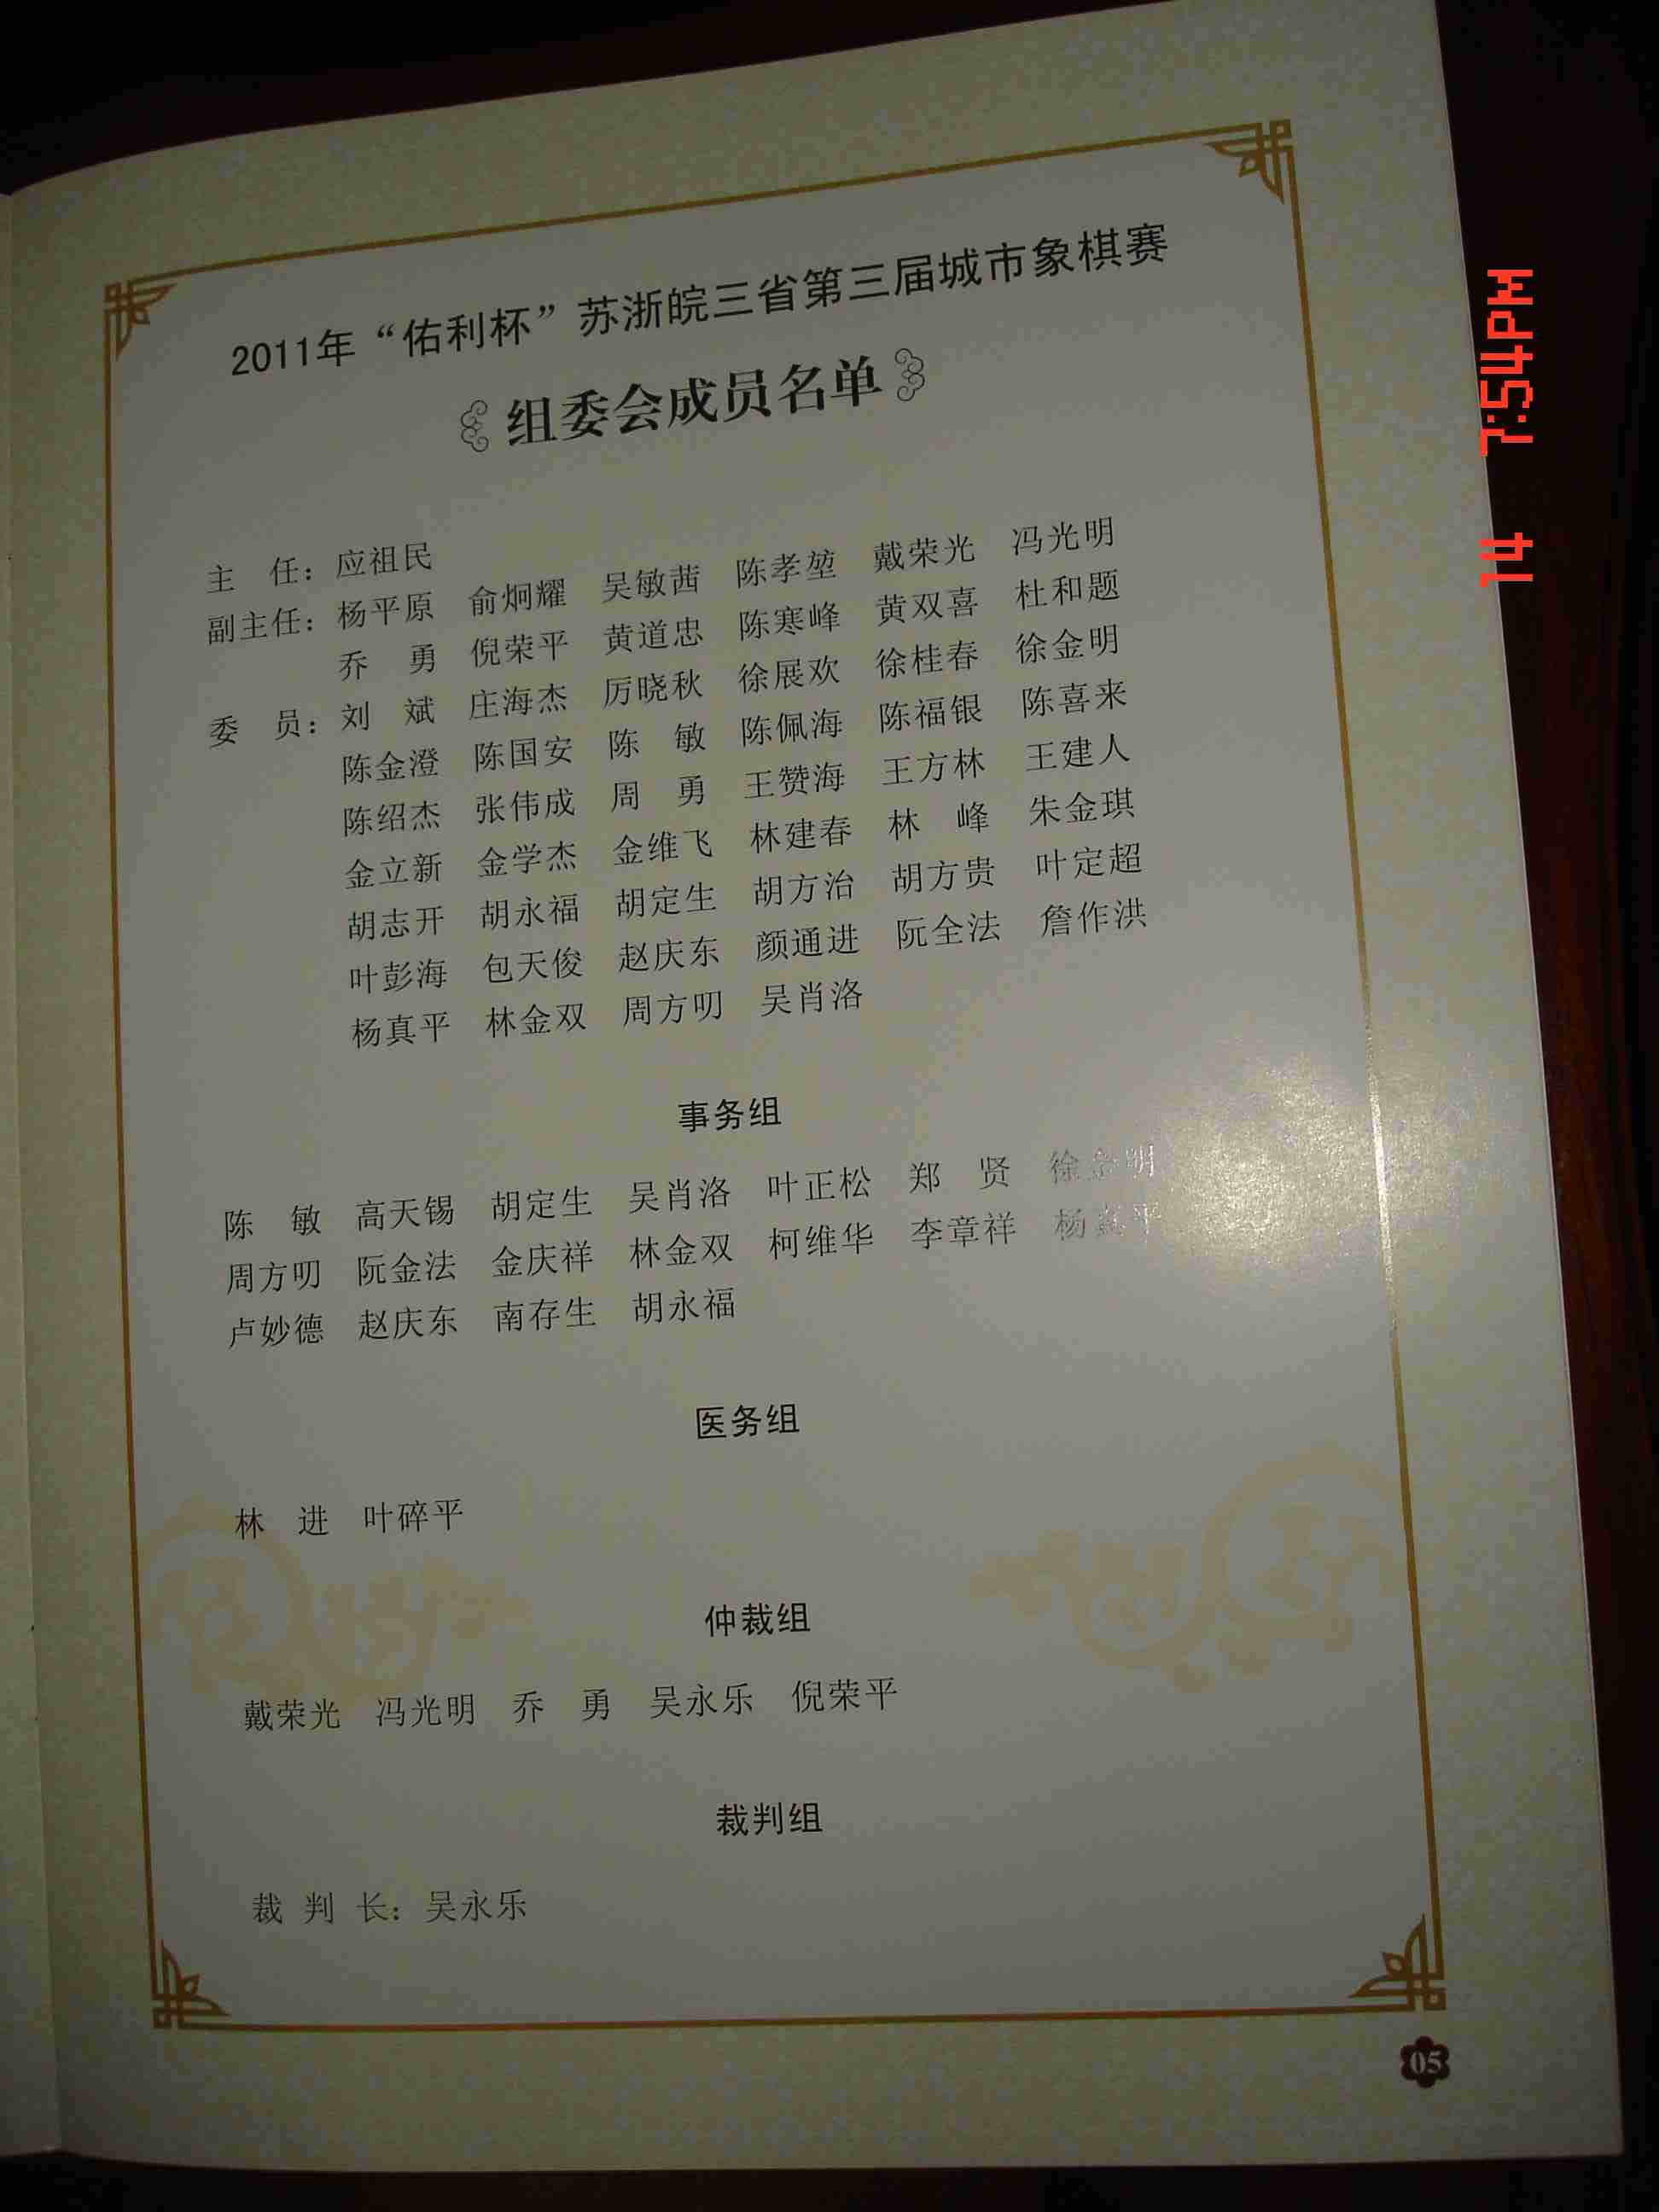 2011年“佑利杯”苏浙皖三省第三届城市象棋赛
组委会成员名单
主 任：应祖民
副主任：杨平原 俞炯耀 吴敏茜 陈孝堃 戴荣光 冯光明
乔 勇 倪荣平 黄道忠 陈寒峰 黄双喜 杜和题
委 员：刘 斌 庄海杰 厉晓秋 徐展欢 徐桂春 徐金明
陈金澄 陈国安 陈 敏 陈佩海 陈福银 陈喜来
陈绍杰 张伟成 周 勇 王赞海 王方林 王建人
金立新 金学杰 金维飞 林建春 林 峰 朱金琪
胡志开 胡永福 胡定生 胡方治 胡方贵 叶定超
叶彭海 包天俊 赵庆东 颜通进 阮全法 詹作洪
杨真平 林金双 周方叨 吴肖洛
事务组
陈 敏 高天锡 胡定生 吴肖洛 叶正松 郑 贤 徐金明
周方叨 阮金法 金庆祥 林金双 柯维华 李章祥 杨真平
卢妙德 赵庆东 南存生 胡永福
医务组
林 进 叶碎平
仲裁组
戴荣光 冯光明 乔 勇 吴永乐 倪荣平
裁判组
裁 判 长：吴永乐
05
14 7:54PM